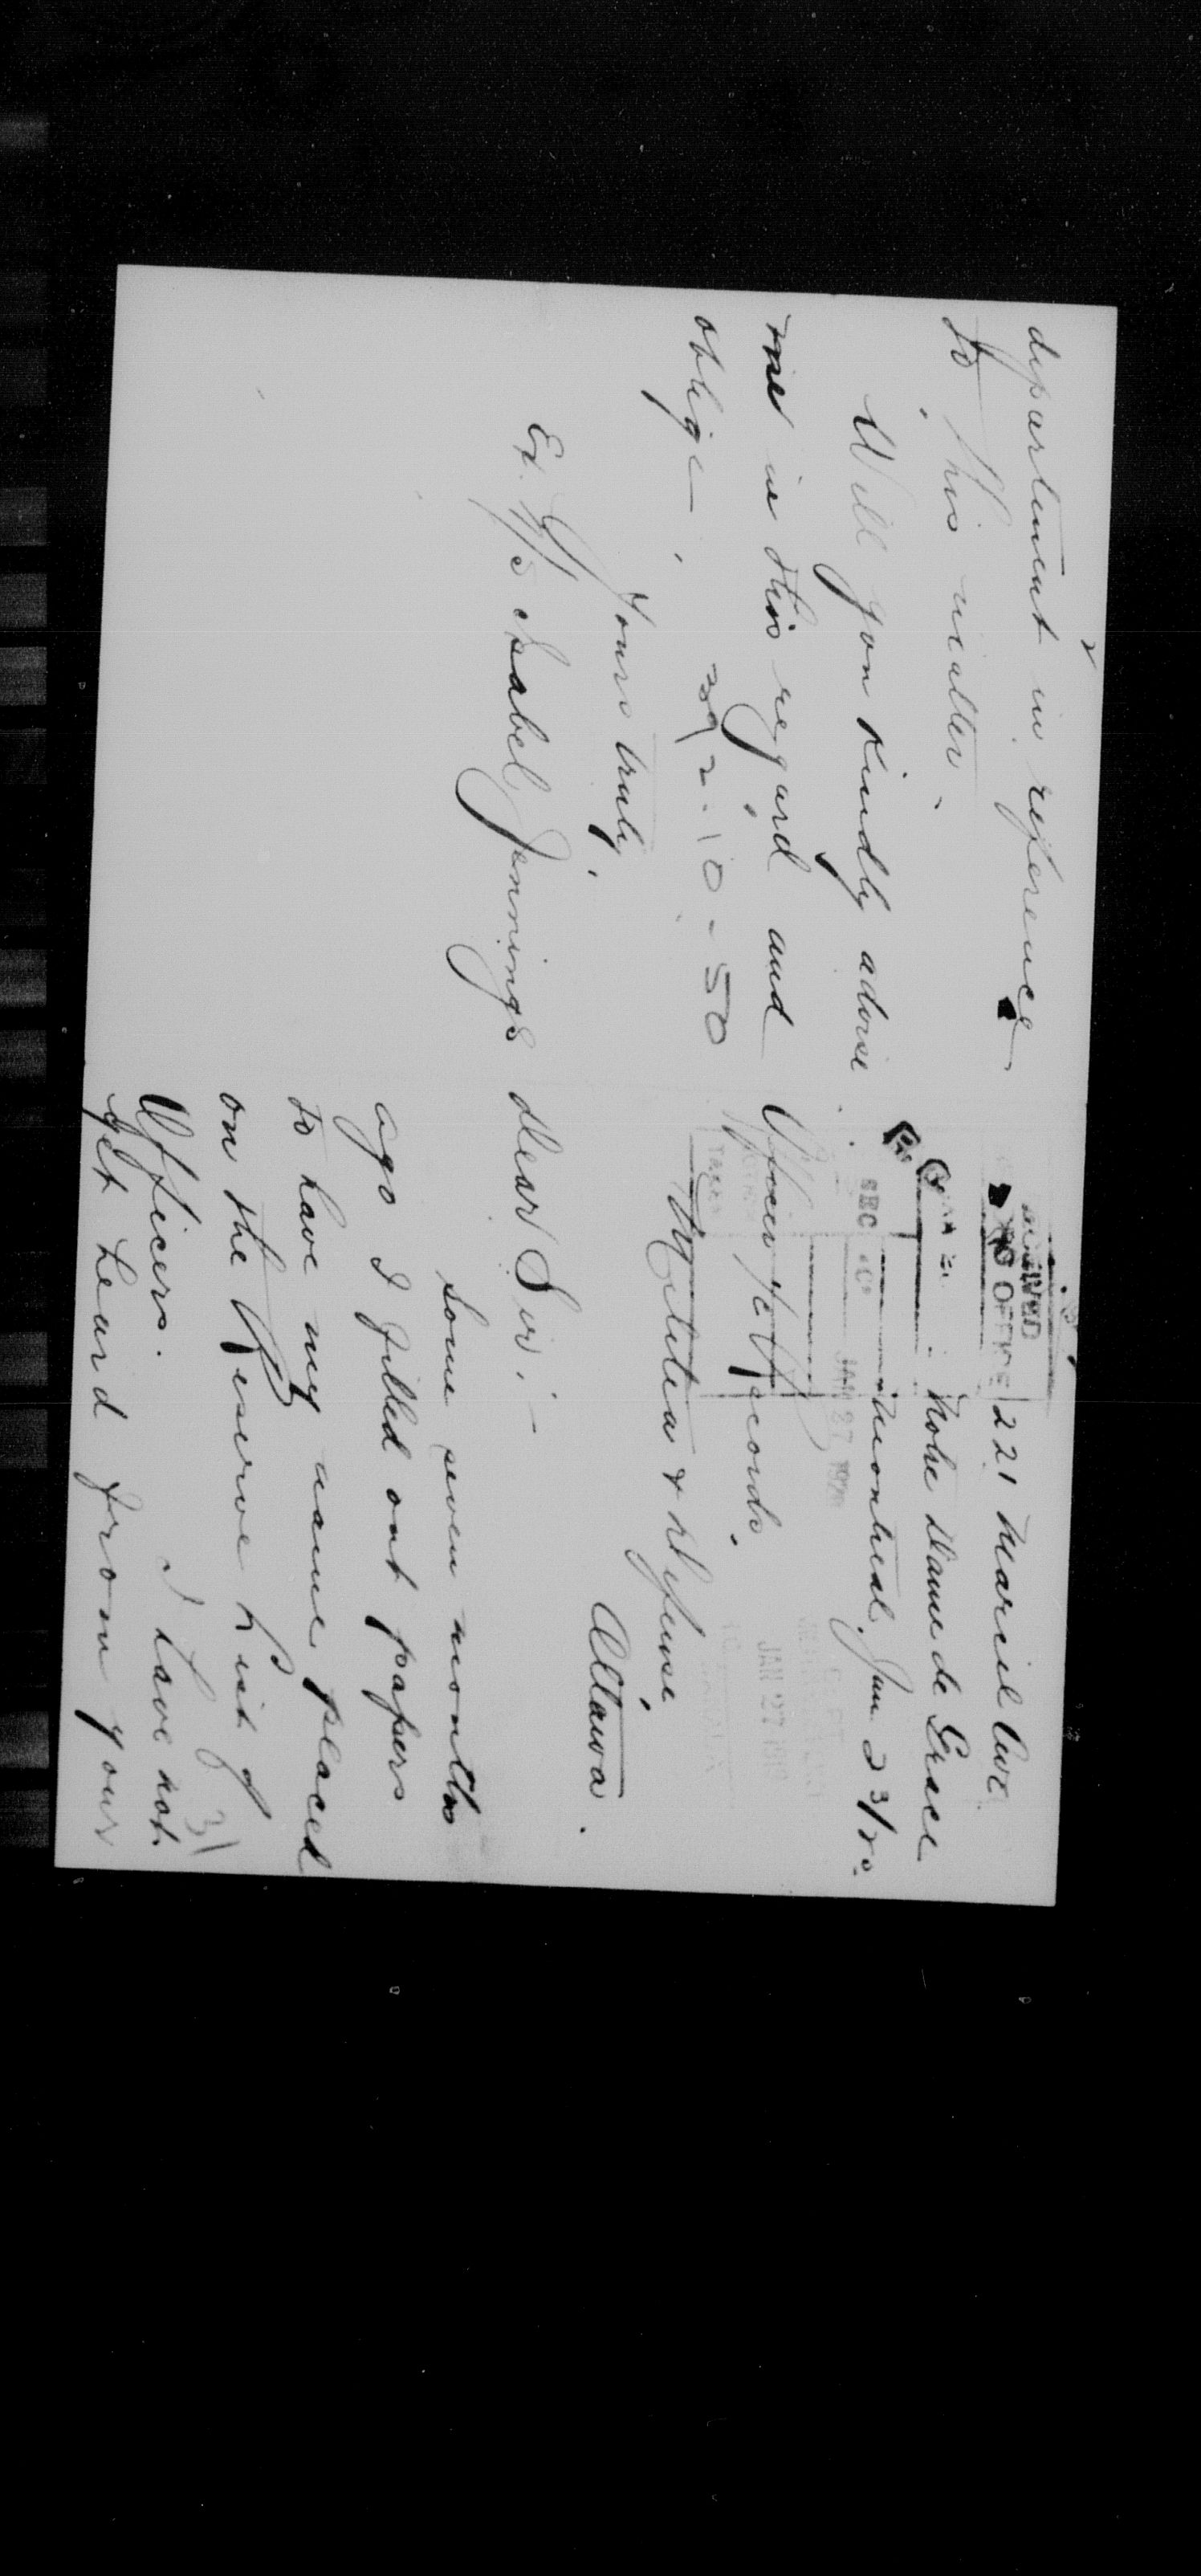 221 Marcil Ave.
Notre Dame de Grace
Montreal, Jan 23/20.
Officer i/c Records.
Militia & Defense,
Ottawa.
Dear Sir:-
Some seven months
ago I filled out papers
to have my name placed
on the Reserve List of
Officers. I have not
yet heard from your
31
2
department in reference
to this matter.
Will you kindly advise
me in this regard and
oblige -
2-10-50
Yours truly,
Ex. N/S Isabel Jennings
RECEIVED
OFFICE
SEC
JAN 27 1920
JAN 27 19